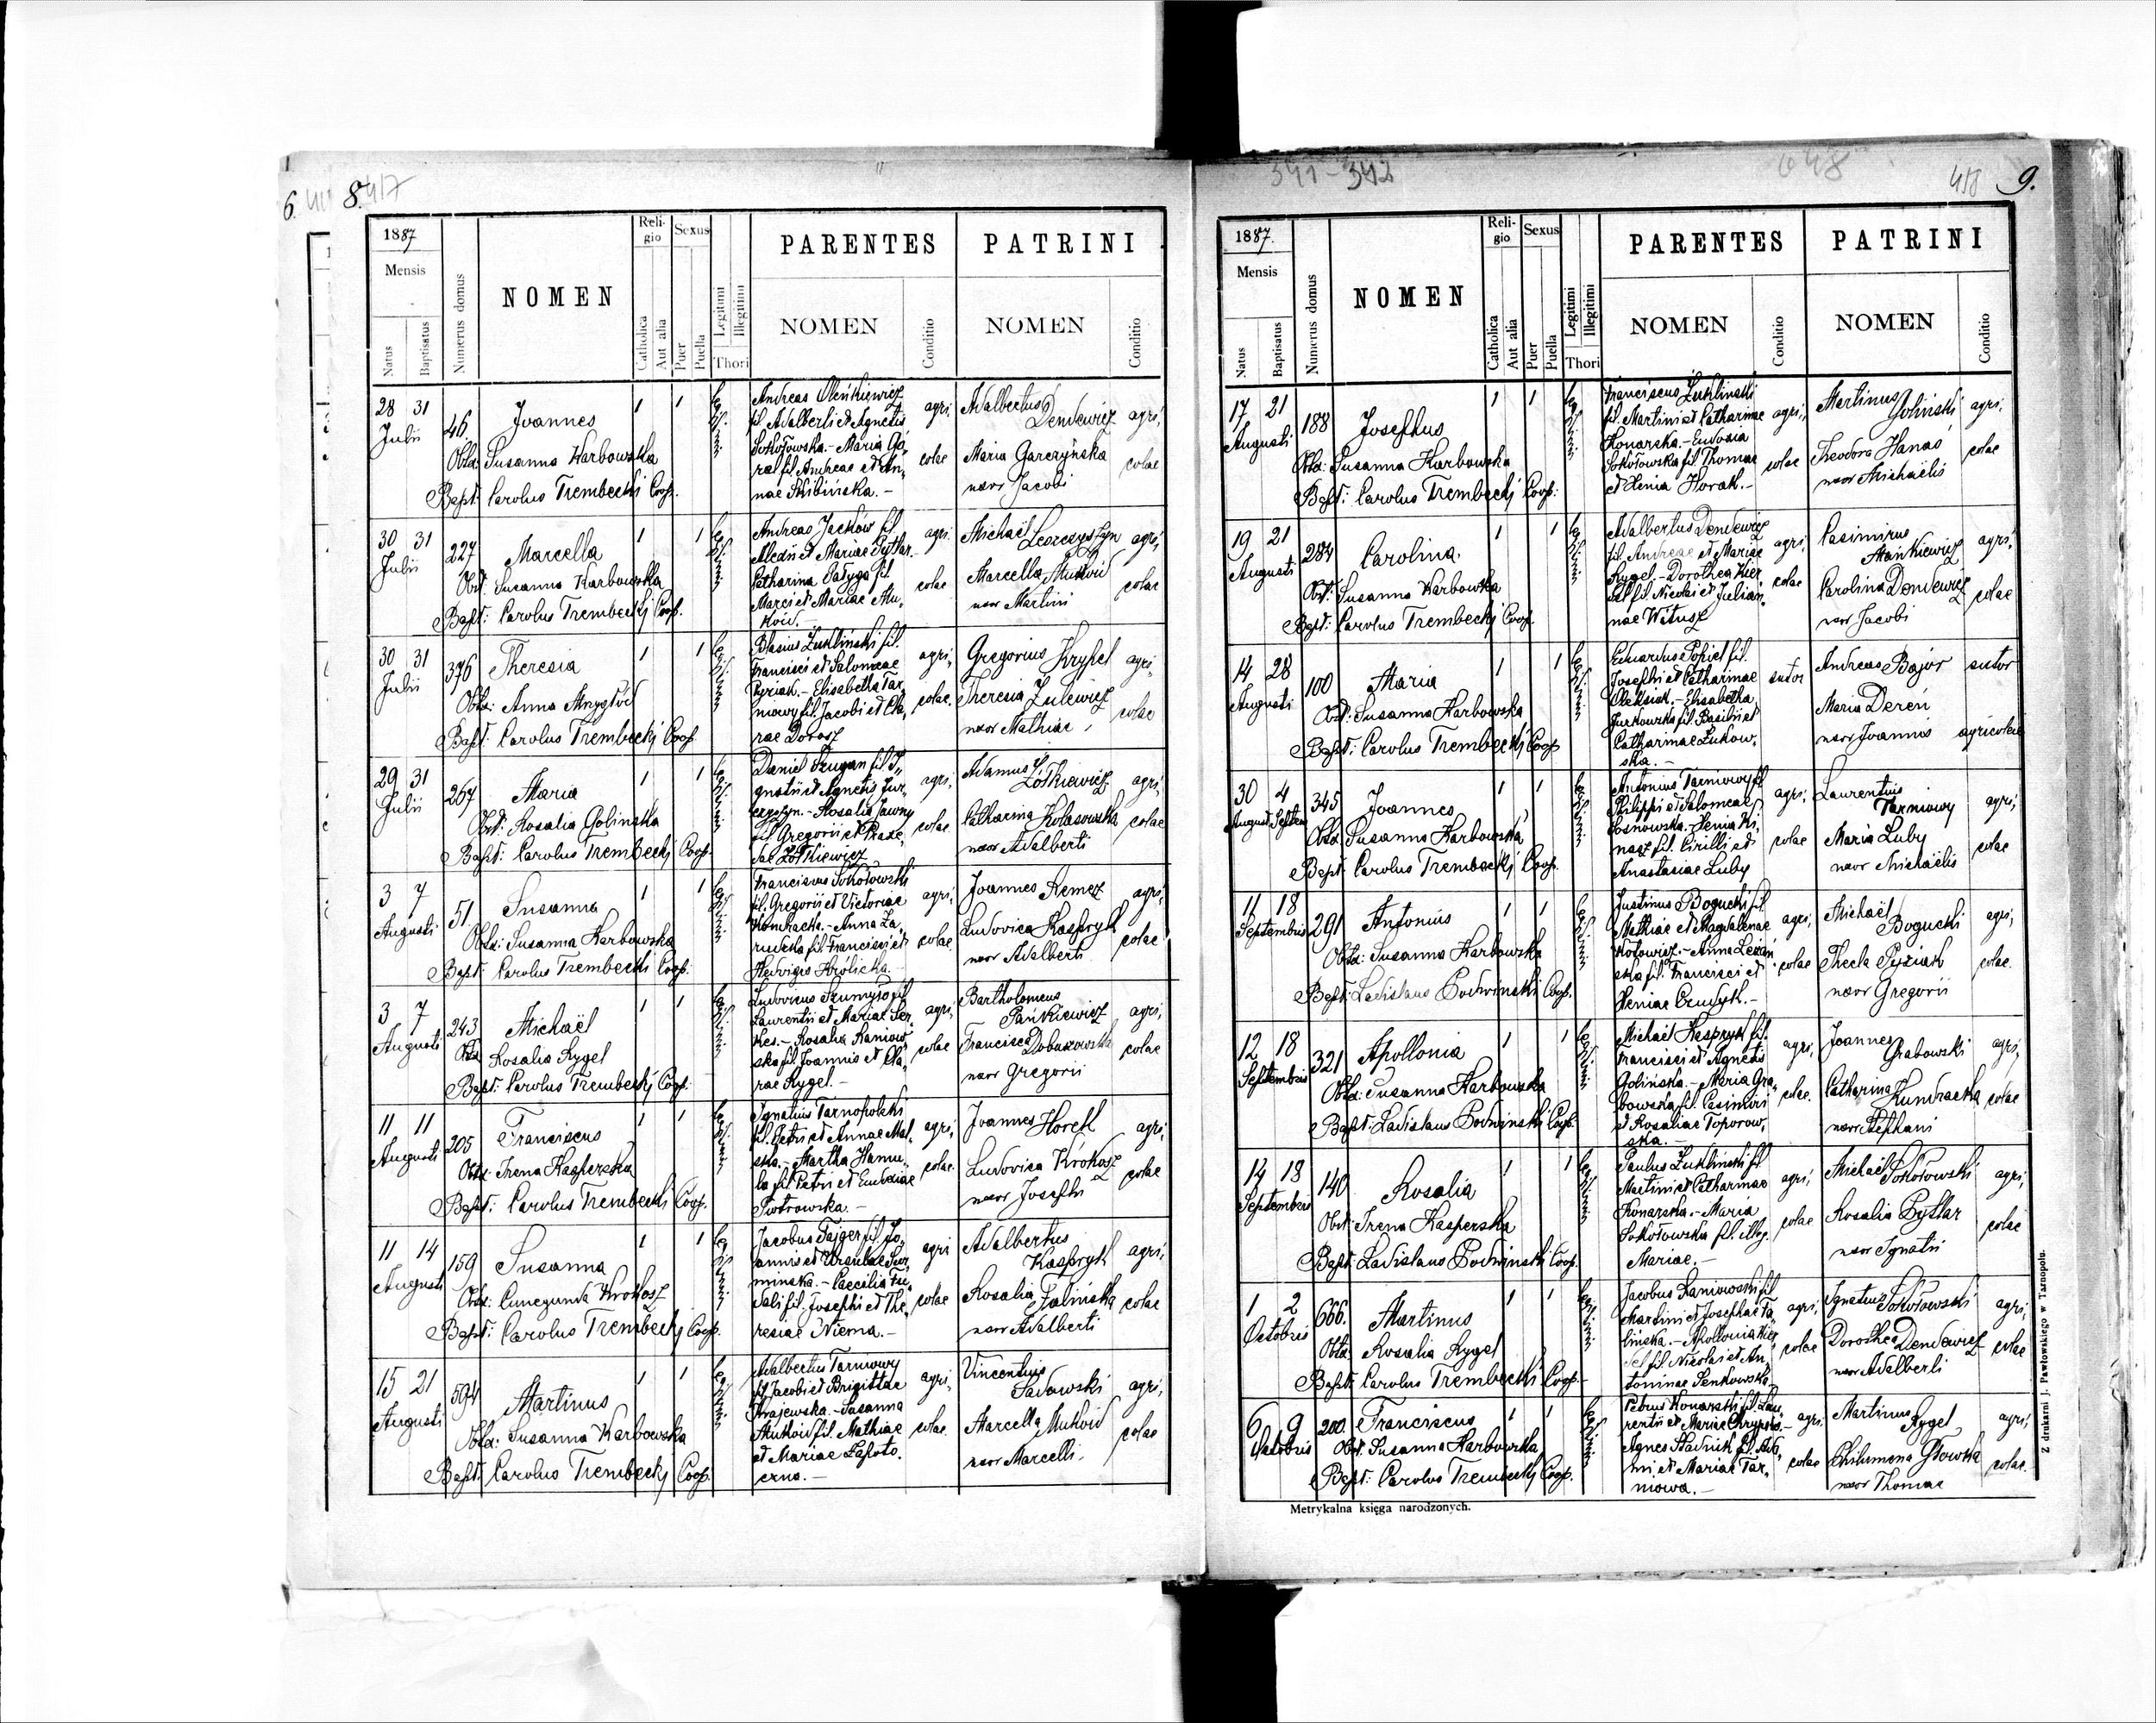 6.
8.
417
1887
Mensis
Natus
Baptisatus
Numerus domus
NOMEN
Reli-
gio
Catholica
Aut alia
Sexus
Puer
Puella
Legitimi
Illegitimi
Thori
PARENTES
NOMEN
Conditio
PATRINI
NOMEN
Conditio
28 31
Julii
46
Joannes
1 1
Obst: Susanna Karbowska
Bapt: Carolus Trembecki Coop.
Andreas Oleńkiewicz
fil. Adalberti et Agnetis
Sokołowska. - Maria Gó-
ral fil. Andreae et An-
nae Skibińska. -
agri-
colae
Adalbertus
Dendewicz
Maria Garczyńska
uxor Jacobi
agri,
colae
30 31
Julii
227
Marcella
1 1
Obst: Susanna Karbowska
Bapt: Carolus Trembecki Coop.
Andreas Jacków fil
Alexii et Mariae Pytlar. -
Catharina Pałyga fil.
Marci et Mariae Mu-
koid. -
agri-
colae
Michaël Leszczyszyn
Marcella Mukoid
uxor Martini
agri,
colae
30 31
Julii
376
Theresia
1 1
Obst: Anna Mnygłód
Bapt: Carolus Trembecki Coop
Blasius Żukliński fil.
Francisci et Salomeae
Cyriak. - Elisabetha Tar-
nowy fil. Jacobi et Cla-
rae Dorosz
agri-
colae.
Gregorius Krypel
Theresia Zulewicz
uxor Mathiae
agri-
colae
29 31
Julii
267
Maria
1 1
Obst: Rosalia Golinska
Bapt: Carolus Trembecki Coop.
Daniel Szugan fil I-
gnatii et Agnetis Jur-
czyszyn. - Rosalia Jawny
fil Gregorii et Praxe-
dae Żółkiewicz
agri,
colae
Adamus
Żółkiewicz
Catharina Kolasowska
uxor Adalberti
agri,
colae
3 7
Augusti
51
Susanna
1 1
Obst: Susanna Karbowska
Bapt: Carolus Trembecki Coop.
Franciscus Sokołowski
fil. Gregorii et Victoriae
Kondracka. - Anna Za-
rudzka fil Francisci et
Hedviges Królicka. -
agri,
colae
Joannes Remez
Ludovica Kaspryk
uxor Adalberti
agri,
colae
3 7
Augusti
243
Michaël
1 1
Obst Rosalia Rygel
Bapt: Carolus Trembecki Coop.
Ludovicus Szumyło fil
Laurentii et Mariae Ser-
kes. - Rosalia Kaniow-
ska fil. Joannis et Cla-
rae Rygel. -
agri,
colae
Bartholomeus
Pańkiewicz
Francisca Dobuxowska
uxor Gregorii
agri,
colae
11 11
Augusti
205
Franciscus
1 1
Obst: Irena Kasperska
Bapt: Carolus Trembecki Coop.
Ignatius Tarnopolski
fil. Petri et Annae Mal-
ska. - Martha Hanu-
la fil Petri et Eudoxiae
Piotrowska. -
agri,
colae
Joannes Horeń
Ludovica Krokosz
uxor Josephi
agri,
colae
11 14
Augusti
159
Susanna
1 1
Obst: Cunegunda Krokosz
Bapt: Carolus Trembecki Coop.
Jacobus Fajger fil. Jo-
annis et Ursulae Sur-
minska. - Caecilia Fu-
dali fil. Josephi et The-
resiae Niema. -
agri
colae
Adalbertus
Kaspryk
Rosalia Falińska
uxor Adalberti
agri,
colae
15 21
Augusti
594
Martinus
1 1
Obst: Susanna Karbowska
Bapt: Carolus Trembecki Coop.
Adalbertus Tarnowy
fil Jacobi et Brigittae
Krajewska. - Susanna
Mukoid fil. Mathiae
et Mariae Zapoto-
czna. -
agri,
colae
Vincentius
Sadowski
Marcella Mukoid
uxor Marcelli
agri,
colae
341-342
648
418 9.
1887.
Mensis
Natus
Baptisatus
Numerus domus
NOMEN
Reli-
gio
Catholica
Aut alia
Sexus
Puer
Puella
Legitimi
Illegitimi
Thori
PARENTES
NOMEN
Conditio
PATRINI
NOMEN
Conditio
17 21
Augusti
188
Josephus
1 1
Obst: Susanna Karbowska
Bapt: Carolus Trembecki Coop:
Franciscus Żukliński
fil. Martini et Catharinae
Konarska. - Eudoxia
Sokołowska fil. Thomae
et Xenia Horak. -
agri,
colae
Martinus
Goliński
Theodora Hanas
uxor Michaëlis
agri,
colae
19 21
Augusti
284
Carolina
1 1
Obst: Susanna Karbowska
Bapt: Carolus Trembecki Coop
Adalbertus Dendewicz
fil. Andreae et Mariae
Rygel. - Dorothea Kier-
del fil. Nicolai et Julian-
nae Witusz
agri,
colae
Casimirus
Mańkiewicz
Carolina Dendewicz
uxor Jacobi
agri,
colae
14 28
Augusti
100
Maria
1 1
Obst: Susanna Karbowska
Bapt: Carolus Trembecki Coop
Eduardus Popiel fil.
Josephi et Catharinae
Oleksiuk. - Elisabetha
Jurkowska fil. Basilii et
Catharinae Żukow-
ska. -
sutor
Andreas Bajor
Maria Dereń
uxor Joannis
sutor
agricolae
30 4
August Septem
345
Joannes
1 1
Obst: Susanna Karbowska
Bapt: Carolus Trembecki Coop.
Antonius Tarnowy fil
Philippi et Salomeae
Sosnowska. - Xenia Ki-
nasz fil. Cirilli et
Anastasiae Luby
agri,
colae
Laurentius
Tarnowy
Maria Luby
uxor Michaëlis
agri,
colae
11 18
Septembris
291
Antonius
1 1
Obst: Susanna Karbowska
Bapt: Ladislaus Podwinski Coop.
Justinus Bogucki fil.
Mathiae et Magdalenae
Kotowicz. - Anna Leżań-
ska fil. Francisci et
Xeniae Czudyk. -
agri,
colae
Michaël
Bogucki
Thecla Pyziak
uxor Gregorii
agri,
colae.
12 18
Septembris
321
Apollonia
1 1
Obst: Susanna Karbowska
Bapt: Ladislaus Podwinski Coop.
Michaël Kaspryk fil.
Francisci et Agnetis
Golińska. - Maria Gra-
bowska fil. Casimiri
et Rosaliae Toporow-
ska. -
agri,
colae.
Joannes
Grabowski
Catharina Kundracka
uxor Stephani
agri,
colae
14 18
Septembris
140
Rosalia
1 1
Obst: Irena Kasperska
Bapt: Ladislaus Podwinski Coop.
Paulus Żukliński fil
Martini et Catharinae
Konarska. - Maria
Sokołowska fil. illeg.
Mariae. -
agri,
colae
Michaël Sokołowski
Rosalia Pytlar
uxor Ignatii
agri,
colae
1 2
Octobris
666.
Martinus
1 1
Obst: Rosalia Rygel
Bapt: Carolus Trembecki Coop
Jacobus Kaniowski fil
Martini et Josephae Fa-
lińska. - Apollonia Kier-
del fil Nicolai et An-
toninae Senkowska
agri,
colae
Ignatius Sokołowski
Dorothea Dendewicz
uxor Adalberti
agri,
colae
6 9
Octobris
200.
Franciscus
1 1
Obst: Susanna Karbowska
Bapt: Carolus Trembecki Coop.
Petrus Konarski fil. Lau-
rentii et Mariae
Agnes Stadnik fil. Ada-
mi et Mariae Tar-
nowa. -
agri.
colae
Martinus
Rygel
Philumena Głowka
uxor Thomae
agri,
colae.
Metrykalna księga narodzonych.
Z drukarni J. Pawłowskiego w Tarnopolu.